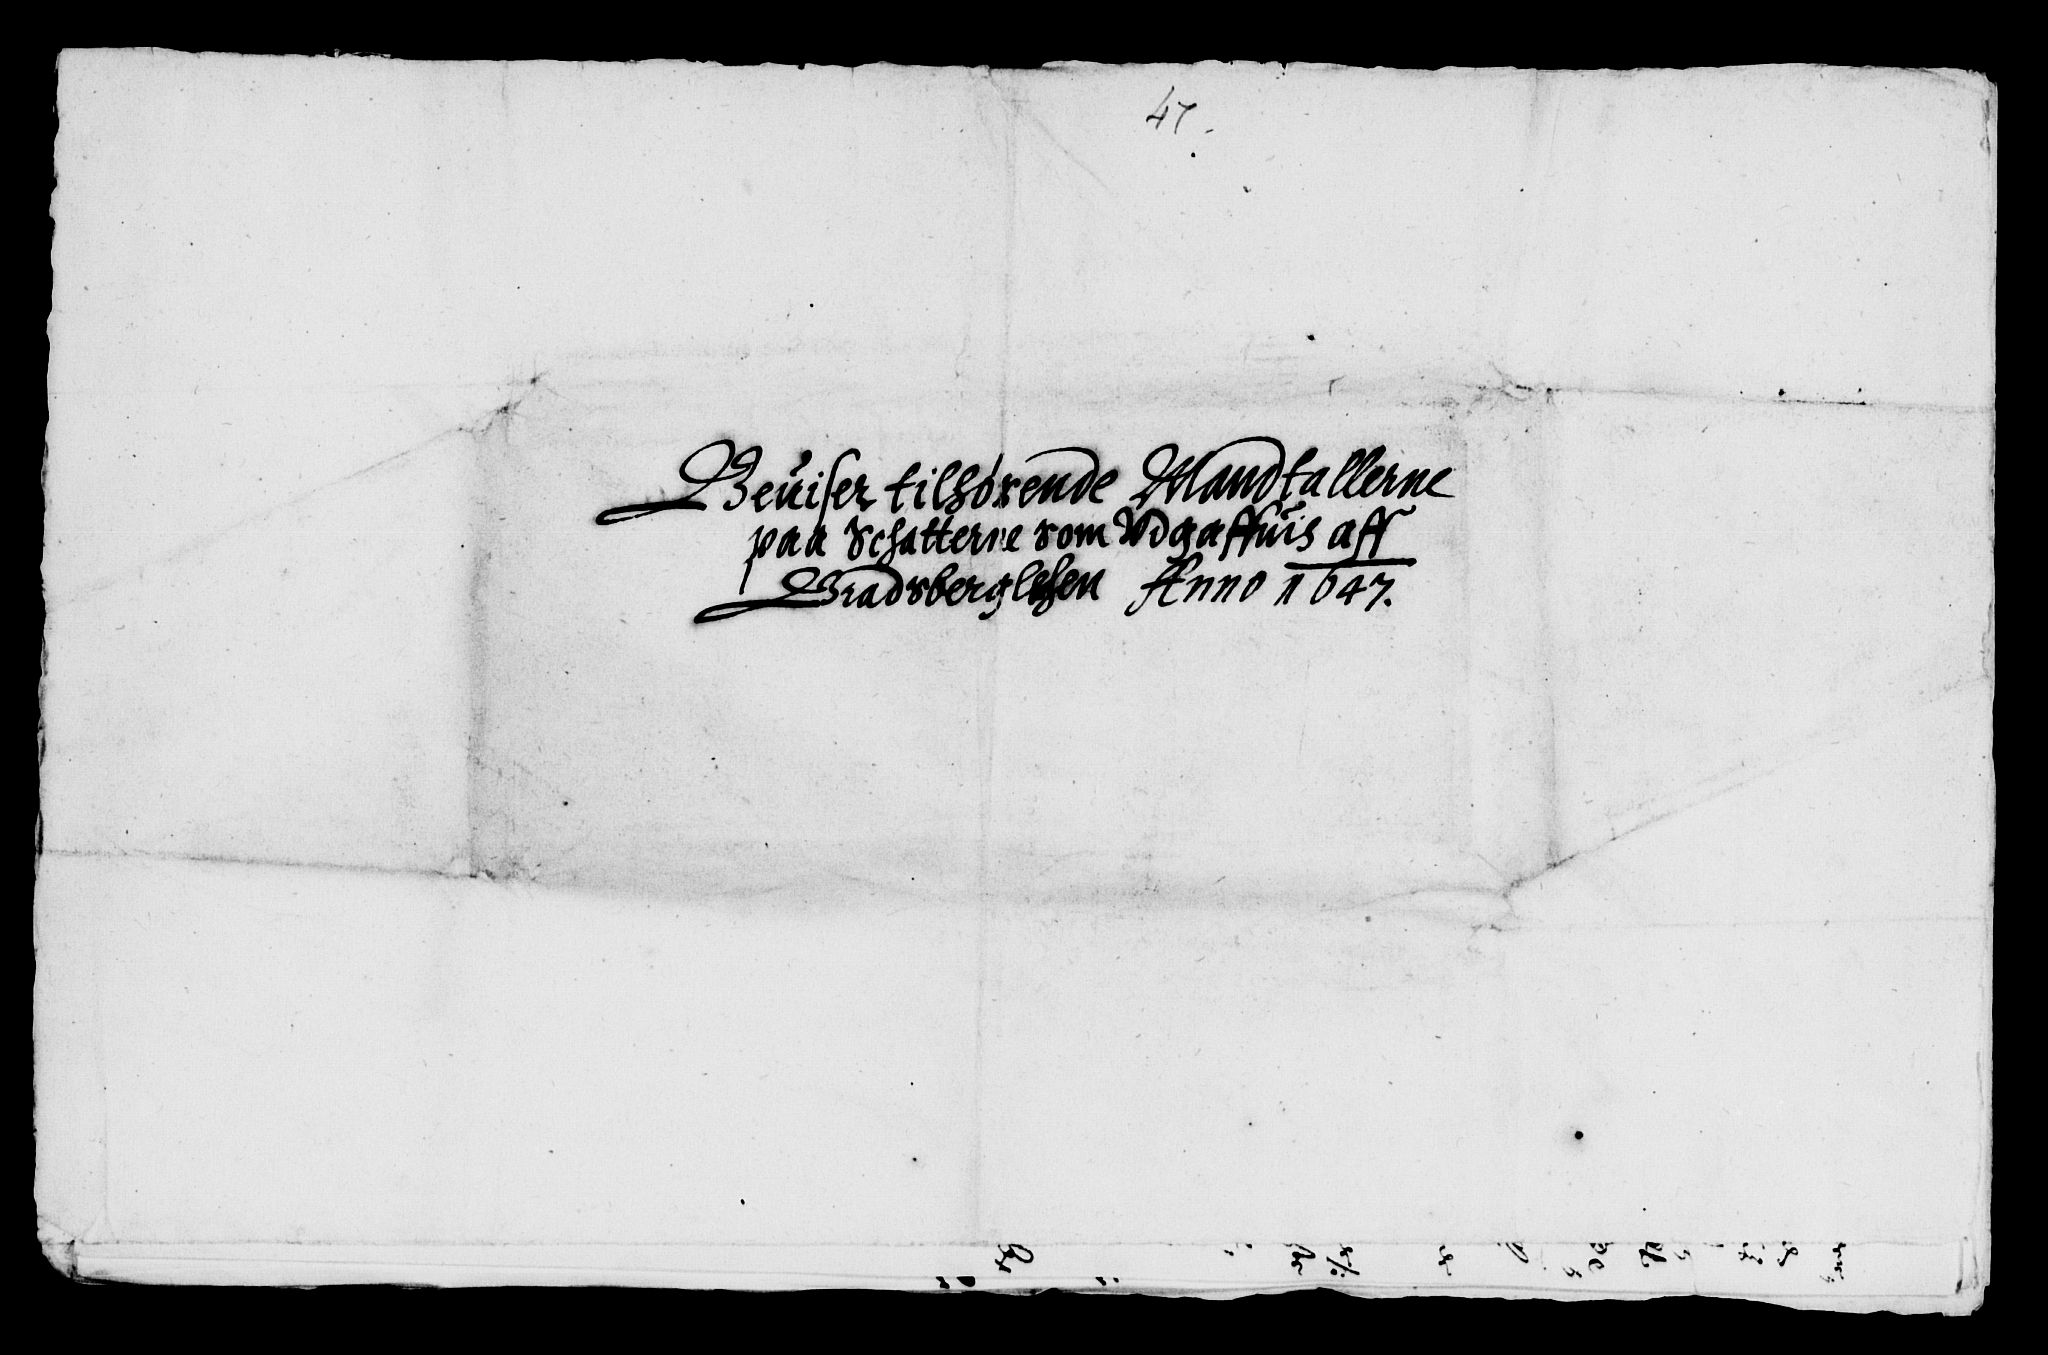 47.
Beuiser tilhörende Mandtallerne
paa Schatterne som Vdgaffuis aff
Bradsberg lehen Anno 1647.